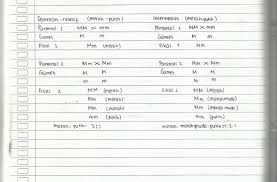 Dominan - resesif (merah - putih)
Parental 1 MM x mm
Gamet M m
Filial 1 Mm (merah)
Parental 2 Mm x Mm
Gamet M M
m m
Filial 2 MM (merah)
Mm (merah)
Mm (merah)
mm (putih)
merah : putih = 3:1
Intermediet (merah-putih)
Parental 1 MM x mm
Gamet M m
Filial 1 Mm
Parental 2 Mm x Mm
Gamet M M
m m
Filial 2 MM (merah)
Mm (merah muda)
Mm (merah muda)
mm (putih)